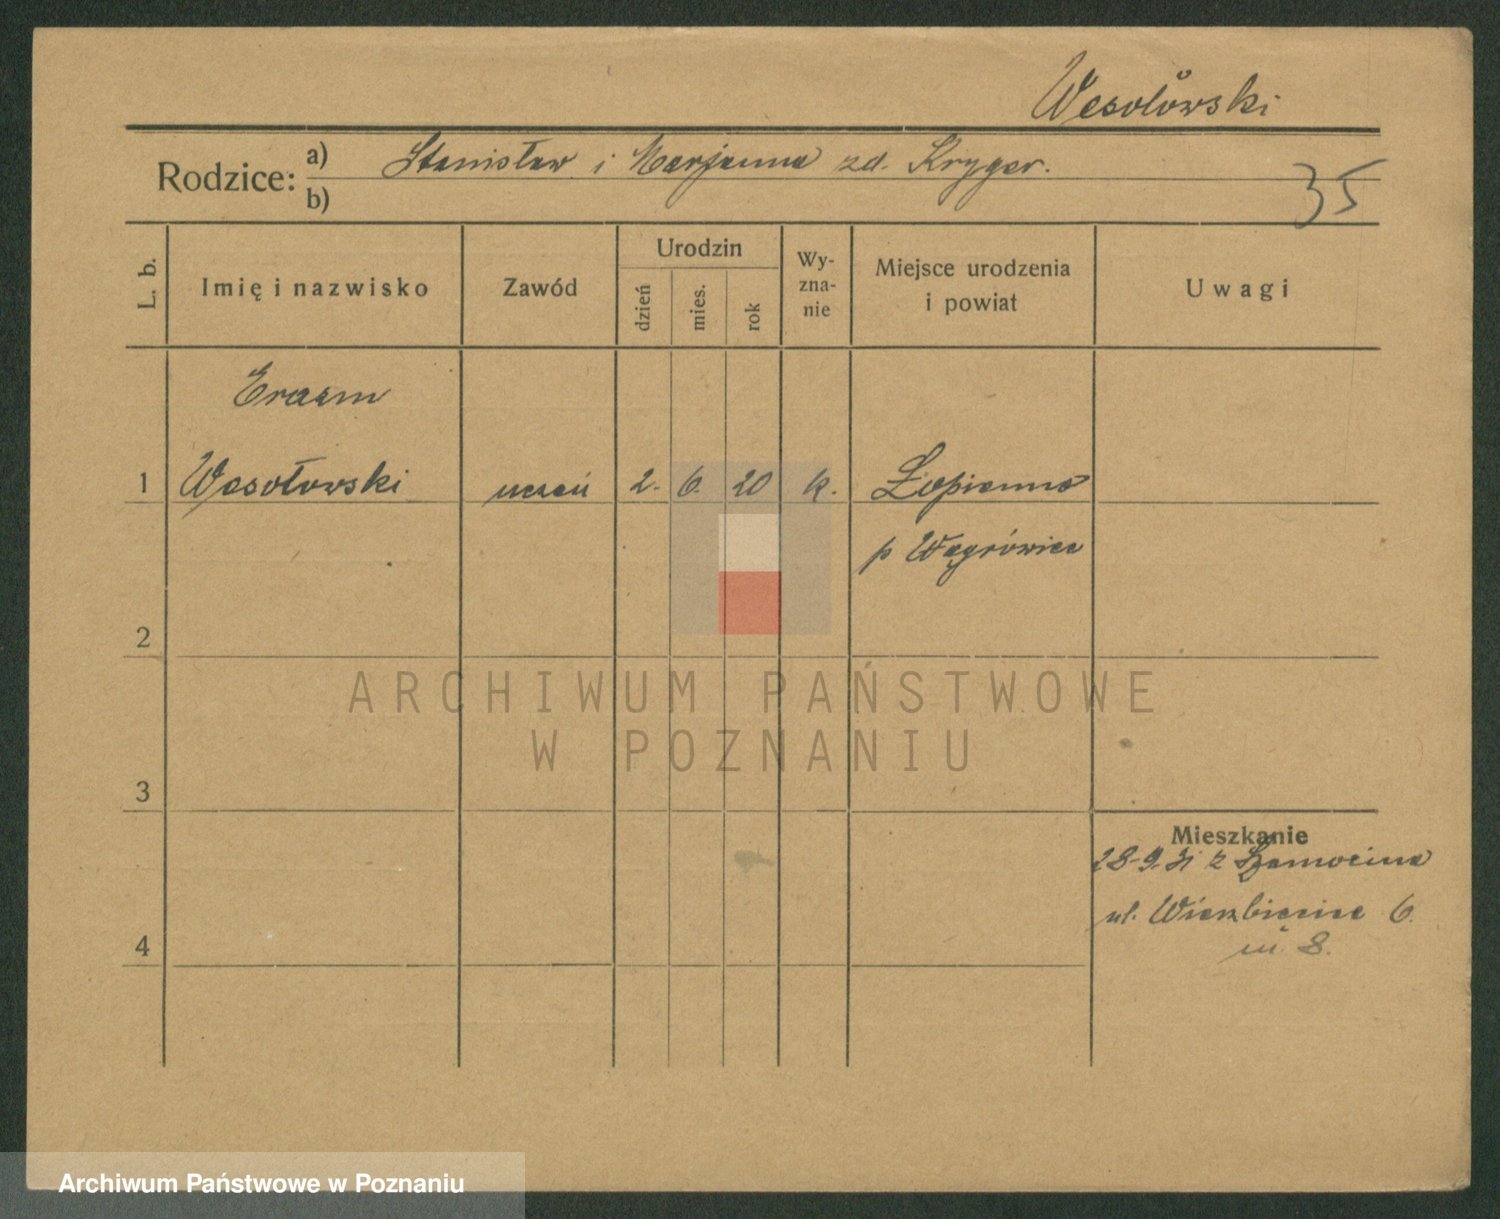 Wesołowski
Rodzice: a) Stanisław i Marjanna zd. Kryger.
b)
35
L. b.
Imię i nazwisko
Zawód
Urodzin
dzień
mies.
rok
Wy-
zna-
nie
Miejsce urodzenia
i powiat
Uwagi
Erazm
1 Wesołowski uczeń 2. 6. 20 k. Łopienno
p Wągrówiec
2
ARCHIWUM PAŃSTWOWE
W POZNANIU
3
Mieszkanie
28-9-31 z Szamocina
ul. Wierzbięcice 6.
m. 8.
4
Archiwum Państwowe w Poznaniu